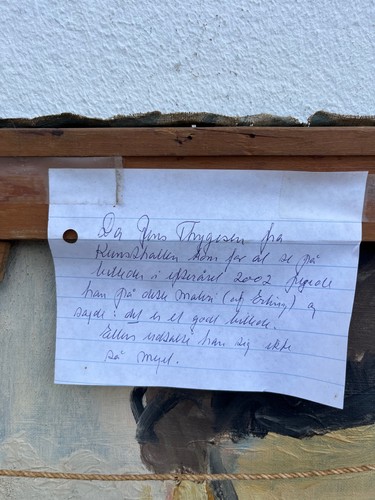 Da Jens Thygesen fra
Kunsthallen kom for at se på
billeder i efteråret 2002 pegede
han på dette maleri (af Esking) og
sagde: det er et godt billede.
Ellers udtalte han sig ikke
så meget.